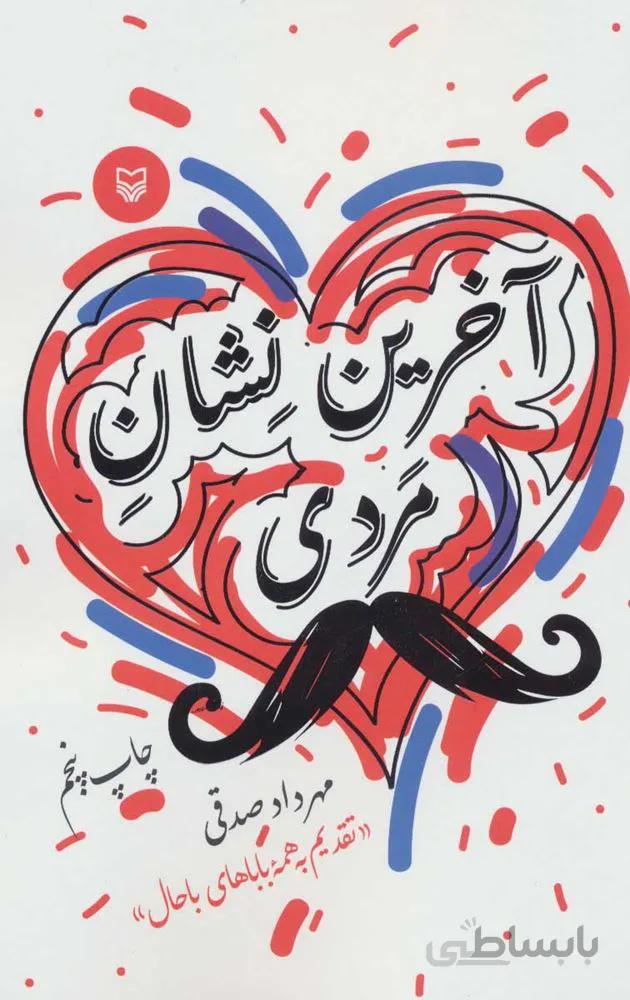 آخرین نِشانِ
مَردی
چاپ پنجم
مهرداد صدقی
«تقدیم به همهٔ باباهای باحال»
بابساطی